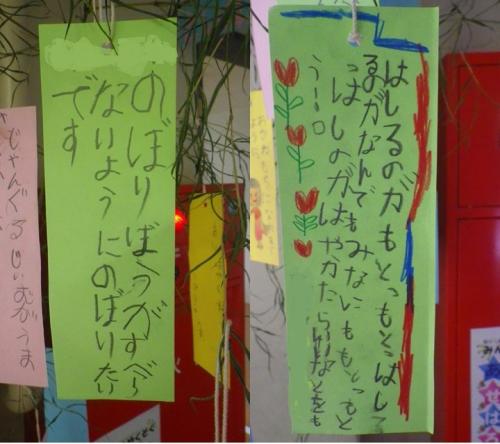 のぼりぼうがすべら
ないようにのぼりたい
です
はしるのがもっともっとはし
るのがなんでもみなにももっと
はしのがはやかたらいいなとおも
う!!。
じゃんぐるじぃむがうま